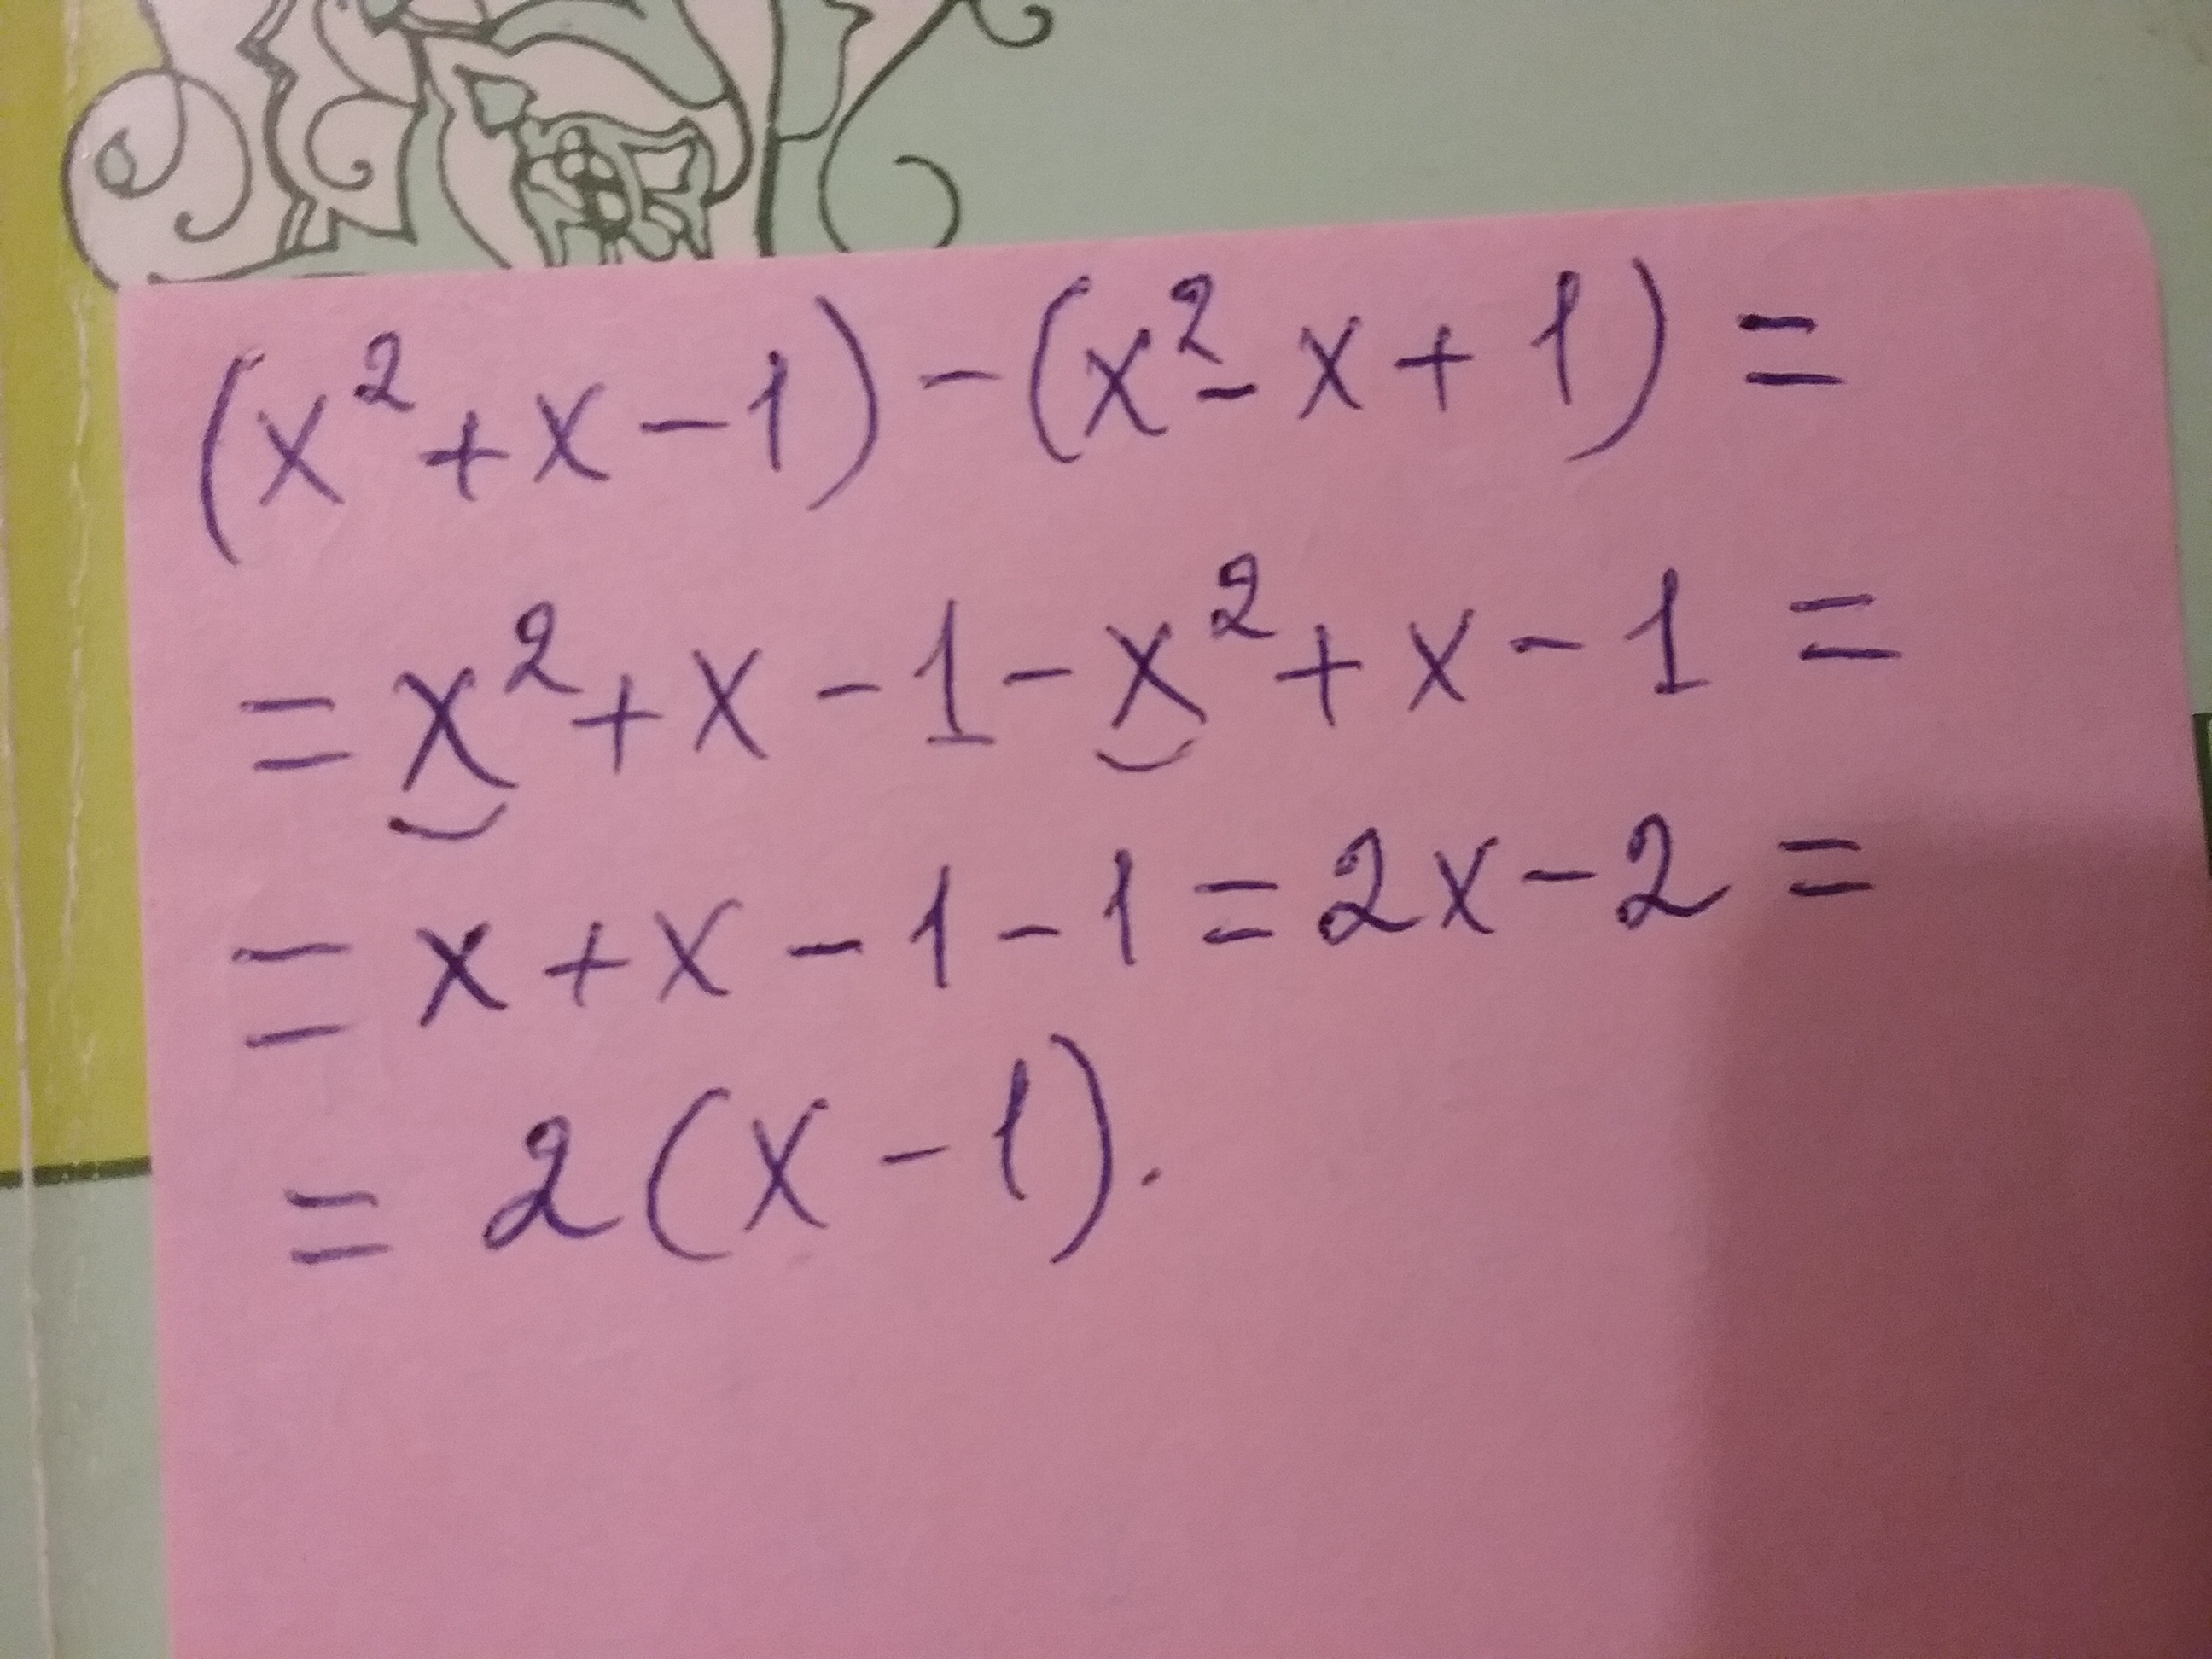 (x²+x-1)-(x²-x+1)=
=x²+x-1-x²+x-1=
=x+x-1-1=2x-2=
=2(x-1).